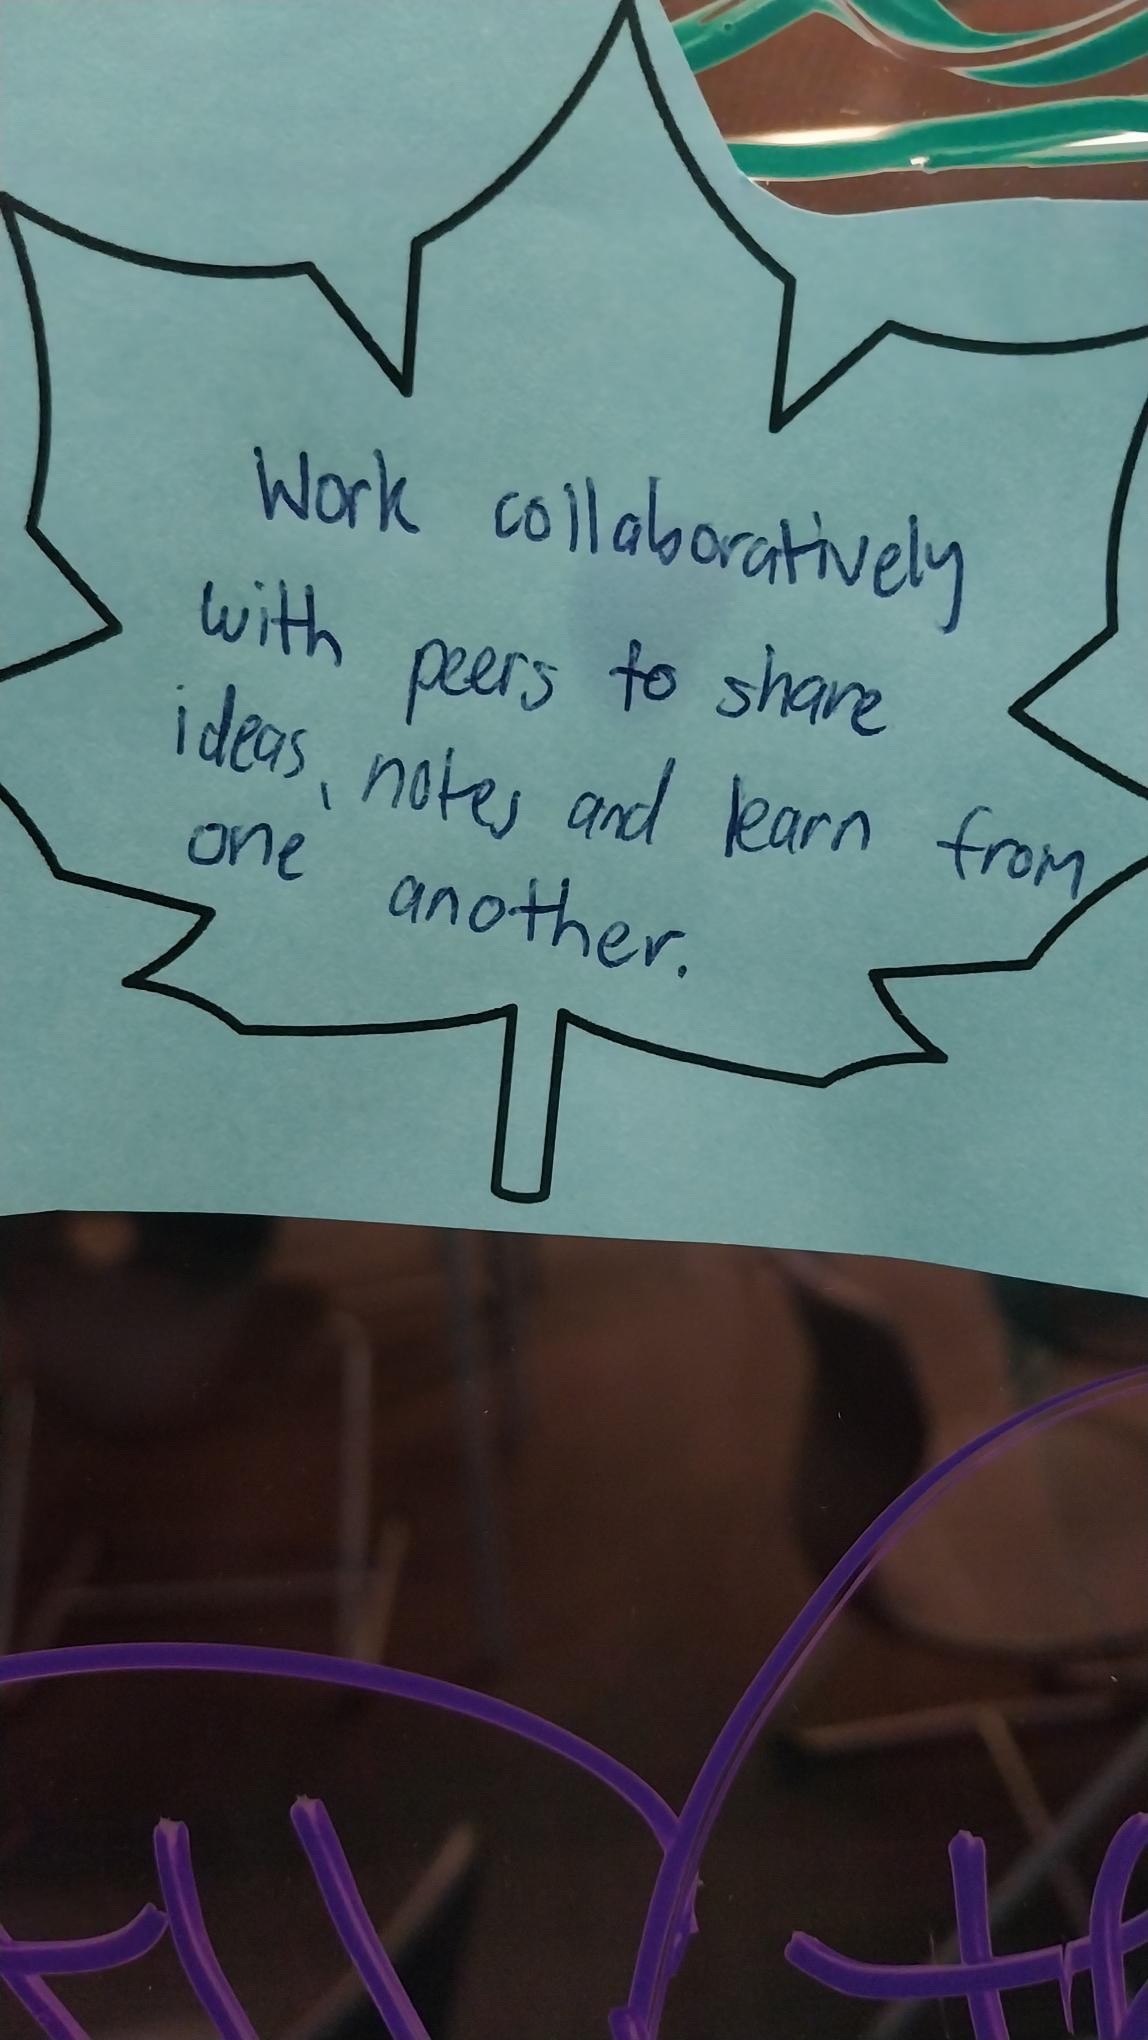 Work collaboratively
with peers to share
ideas, notes and learn from
one another.